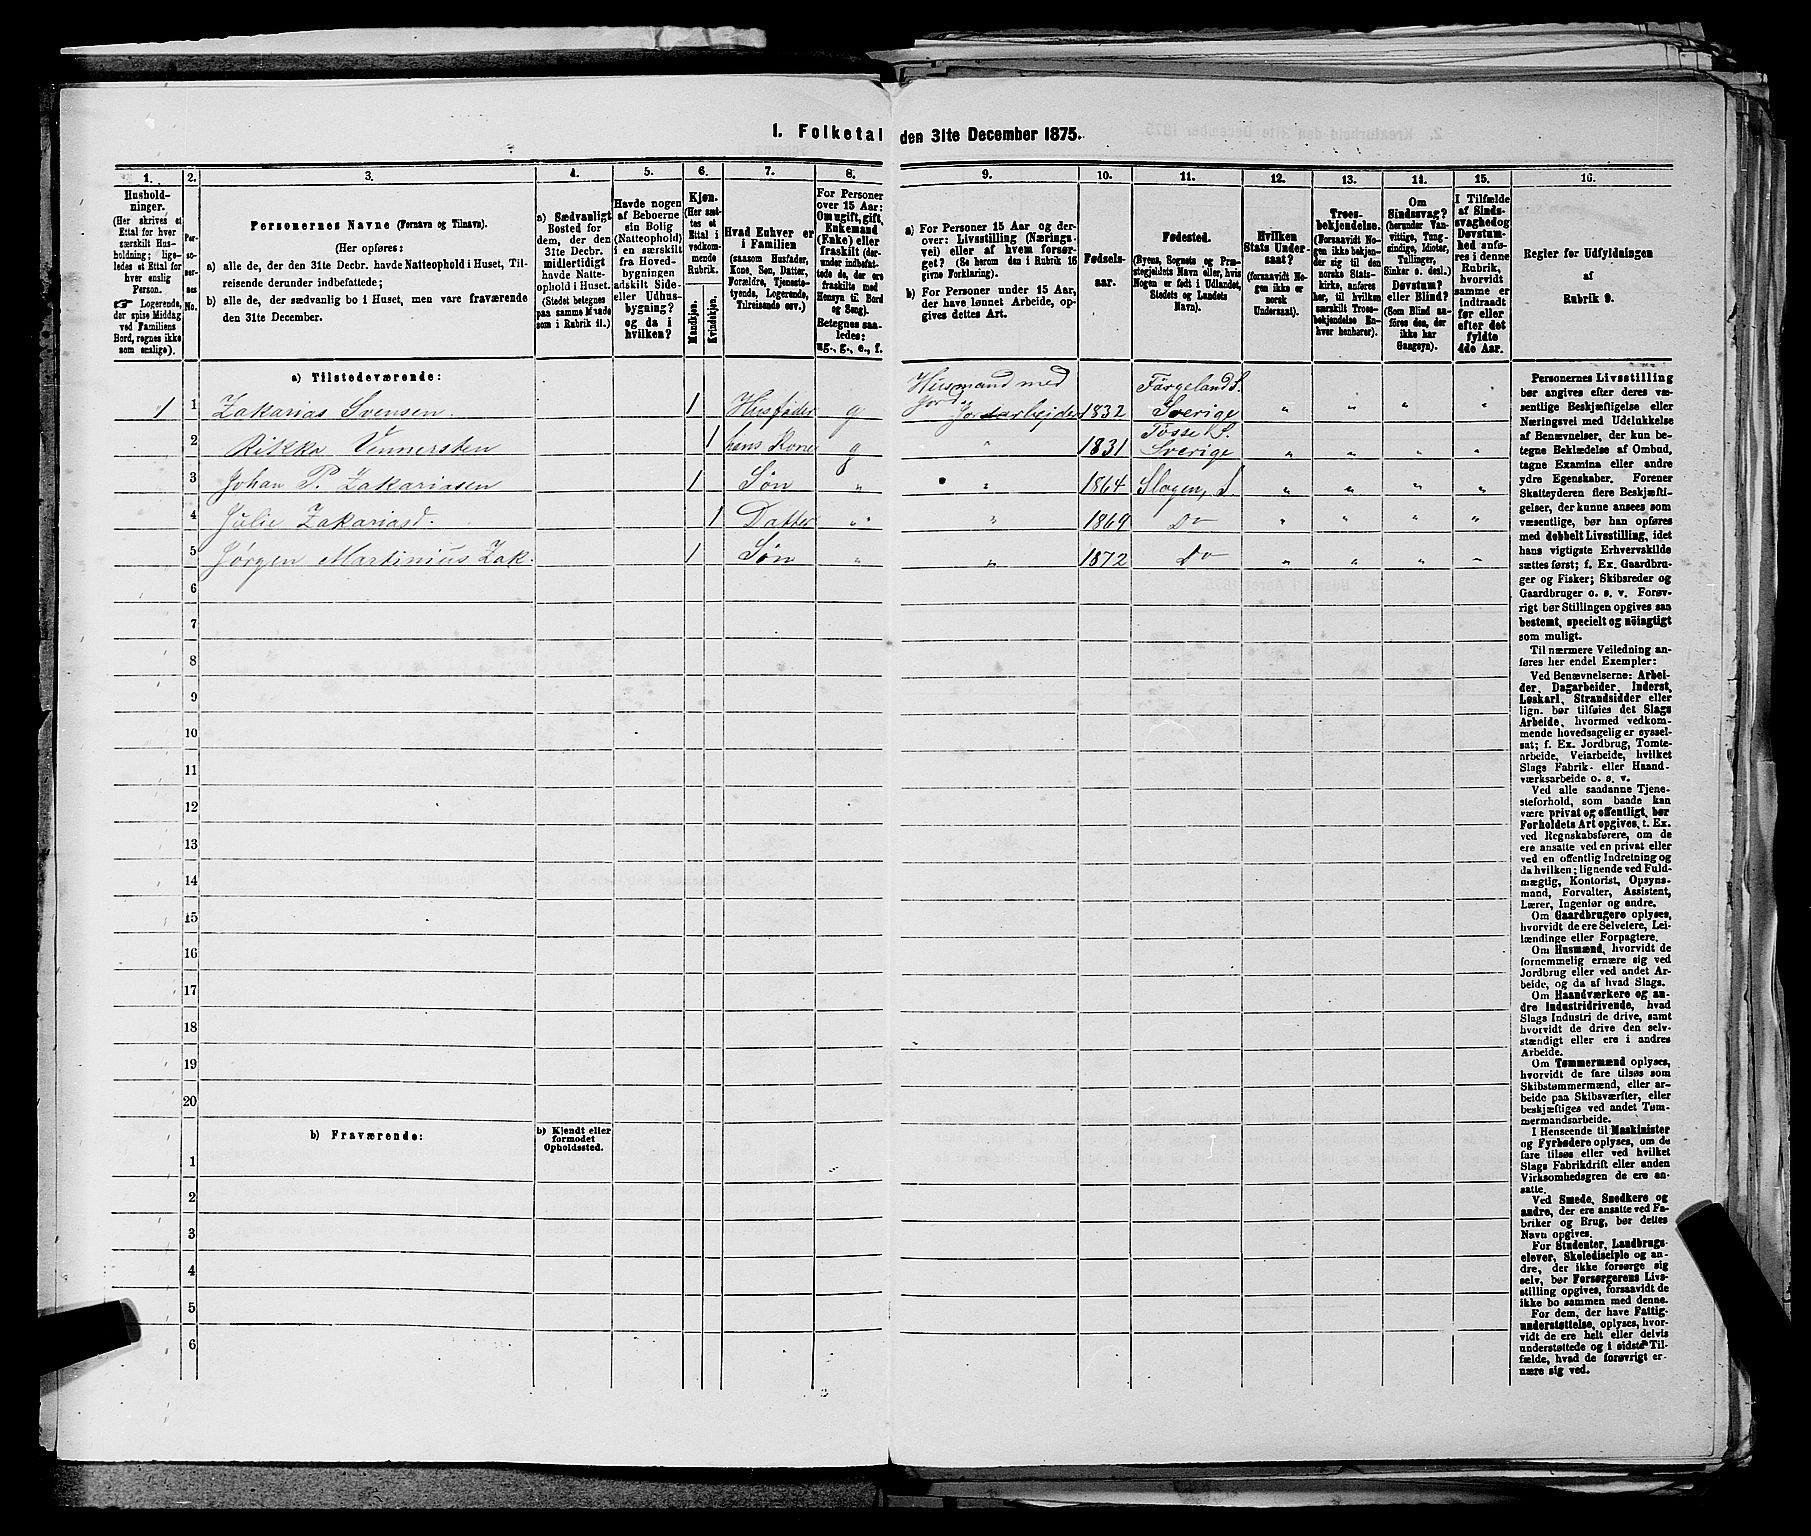 1. Folketal den 31te December 1875.
1.
Husholdninger.
(Her skrives et
Ettal for hver
særskilt Husholdning;
ligeledes
et Ettal for
hver enslig
Person.
☞ Logerende,
der spise Middag
ved Familiens
Bord, regnes ikke
som enslige).
2.
Personernes
No.
3.
Personernes Navne (Fornavn og Tilnavn).
(Her opføres:
a) alle de, der den 31te Decbr. havde Natteophold i Huset, Tilreisende
derunder indbefattede;
b) alle de, der sædvanlig bo i Huset, men vare fraværende
den 31te December.
4.
a) Sædvanligt
Bosted for
dem, der den
31te Decbr.
midlertidigt
havde Natteophold
i Huset.
(Stedet betegnes
paa samme Maade
som i Rubrik 11.)
5.
Havde nogen
af Beboerne
sin Bolig
(Natteophold)
i en særskilt
fra Hovedbygningen
adskilt Side-
eller Udhusbygning?
og da i
hvilken?
6.
Kjøn.
(Her sættes
et
Ettal i
vedkommende
Rubrik.
Mandkjøn.
Kvindekjøn.
7.
Hvad Enhver er
i Familien
(saasom Husfader,
Kone, Søn, Datter,
Forældre, Tjenestetyende,
Logerende,
Tilreisende osv.)
8.
For Personer
over 15 Aar:
Om ugift, gift,
Enkemand
(Enke) eller
fraskilt (derunder
indbefattede
de, der ere
fraskilte med
Hensyn til Bord
og Seng).
Betegnes saaledes:
ug., g., e., f.
9.
a) For Personer 15 Aar og derover:
Livsstilling (Næringsvei)
eller af hvem forsørget?
(Se herom den i Rubrik 16
givne Forklaring).
b) For Personer under 15 Aar,
der have lønnet Arbeide, opgives
dettes Art.
10.
Fødselsaar.
11.
Fødested.
(Byens, Sognets og Præstegjeldets
Navn eller, hvis
Nogen er født i Udlandet,
Stedets og Landets
Navn).
12.
Hvilken
Stats Undersaat?
(forsaavidt Nogen
ikke er
norsk
Undersaat).
13.
Troesbekjendelse.
(Forsaavidt Nogen
ikke bekjender
sig til den
norske Statskirke,
anføres
her, til hvilken
særskilt Troesbekjendelse
Enhver
henhører).
14.
Om
Sindssvag?
(herunder Vanvittige,
Tungsindige,
Idioter,
Tullinger,
Sinker o. desl.)
Døvstum?
eller Blind?
(Som Blind anføres
den, der
ikke har
Gangsyn).
15.
I Tilfælde
af Sindssvaghed
og
Døvstumhed
anføres
i denne
Rubrik,
hvorvidt
samme er
indtraadt
før eller
efter det
fyldte
4de Aar.
16.
Regler for Udfyldningen
af
Rubrik 9.
a) Tilstedeværende:
1 1 Zakarias Svensen 1 Husfader g Husmand med Jord Jordarbeider 1832 Färgeland S. Sverige " " " "
2 Rikka Vennersten 1 hans Kone g " 1831 Tösse S. Sverige " " " "
3 Johan P. Zakariasen 1 Søn " " 1864 Slagen, S. " " " "
4 Julie Zakariasd. 1 Datter " " 1869 Do " " " "
5 Jørgen Martinius Zak. 1 Søn " " 1872 Do " " " "
6
7
8
9
10
11
12
13
14
15
16
17
18
19
20
b) Fraværende:
b) Kjendt eller
formodet
Opholdssted.
1
2
3
4
5
6
Personernes Livsstilling
bør angives efter deres væsentlige
Beskjæftigelse eller
Næringsvei med Udelukkelse
af Benævnelser, der kun betegne
Beklædelse af Ombud,
tagne Examina eller andre
ydre Egenskaber. Forener
Skatteyderen flere Beskjæftigelser,
der kunne ansees som
væsentlige, bør han opføres
med dobbelt Livsstilling, idet
hans vigtigste Erhvervskilde
sættes først; f. Ex. Gaardbruger
og Fisker; Skibsreder og
Gaardbruger o. s. v. Forøvrigt
bør Stillingen opgives saa
bestemt, specielt og nöiagtigt
som muligt.
Til nærmere Veiledning anføres
her endel Exempler:
Ved Benævnelserne: Arbeider,
Dagarbeider, Inderst,
Løskarl, Strandsidder eller
lign. bør tilføies det Slags
Arbeide, hvormed vedkommende
hovedsagelig er sysselsat;
f. Ex. Jordbrug, Tomtearbeide,
Veiarbeide, hvilket
Slags Fabrik- eller Haandværksarbeide
o. s. v.
Ved alle saadanne Tjenesteforhold,
som baade kan
være privat og offentligt, bør
Forholdets Art opgives, t. Ex.
ved Regnskabsførere, om de
ere ansatte ved en privat eller
ved en offentlig Indretning og
da hvilken; lignende ved Fuldmægtig,
Kontorist, Opsynsmand,
Forvalter, Assistent,
Lærer, Ingeniør og andre.
Om Gaardbrugere oplyses,
hvorvidt de ere Selveiere, Leilændinge
eller Forpagtere.
Om Husmænd, hvorvidt de
fornemmelig ernære sig ved
Jordbrug eller ved andet Arbeide,
og da af hvad Slags.
Om Haandværkere og andre
industridrivende, hvad
Slags Industri de drive, samt
hvorvidt de drive den selvstændigt
eller ere i andres
Arbeide.
Om Tømmermænd oplyses,
hvorvidt de fare tilsøs som
Skibstømmermænd, eller arbeide
paa Skibsværfter, eller
beskjæftiges ved andet Tømmermandsarbeide.
I Henseende til Maskinister
og Fyrbødere oplyses, om de
fare tilsøs eller ved hvilket
Slags Fabrikdrift eller anden
Virksomhedsgren de ere ansatte.
Ved Smede, Snedkere og
andre, der ere ansatte ved Fabriker
og Brug, bør dettes
Navn opgives.
For Studenter, Landbrugselever,
Skoledisciple og andre,
der ikke forsørge sig
selv, bør Forsørgerens Livsstilling
opgives, forsaavidt de
ikke bo sammen med denne.
For dem, der have Fattigunderstøttelse,
oplyses, hvorvidt
de ere helt eller delvis
understøttede og i sidste Tilfælde,
hvad de forøvrigt ernære
sig ved.